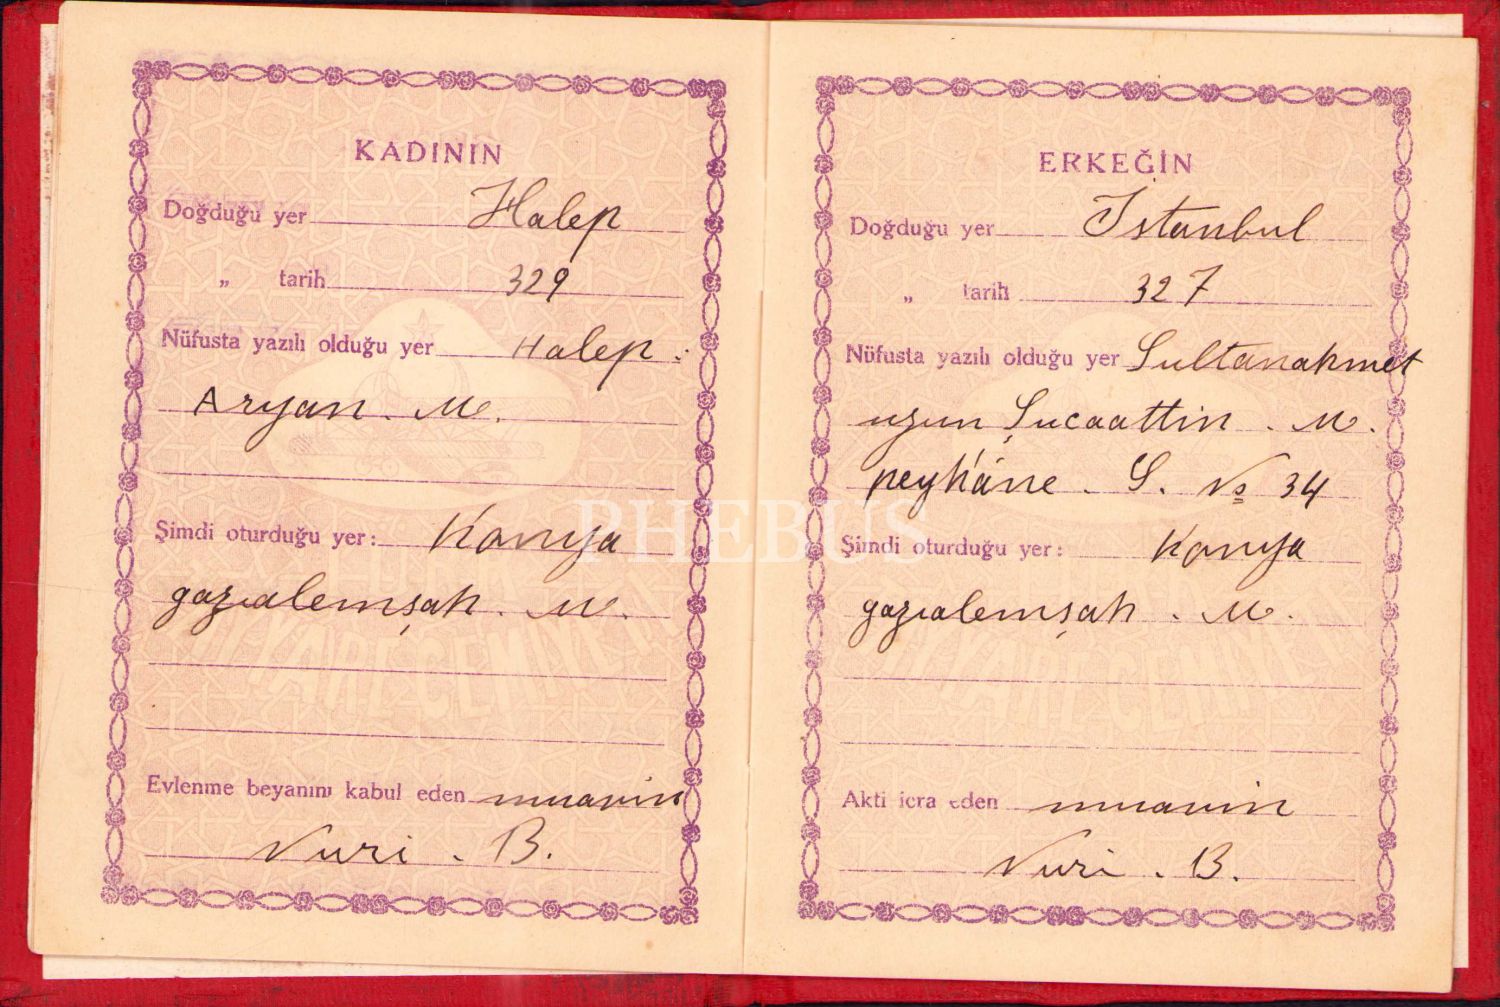 KADININ
Doğduğu yer Halep
„ tarih 329
Nüfusta yazılı olduğu yer Halep.
Aryan. M.
Şimdi oturduğu yer: Konya
gazialemşah. M.
Evlenme beyanını kabul eden muavin
Nuri. B.
ERKEĞİN
Doğduğu yer İstanbul
„ tarih 327
Nüfusta yazılı olduğu yer Sultanahmet
uzun Şucaattin. M.
peykâne. S. No 34
Şimdi oturduğu yer: Konya
gazialemşah. M.
Akti icra eden muavin
Nuri. B.
PHEBUS